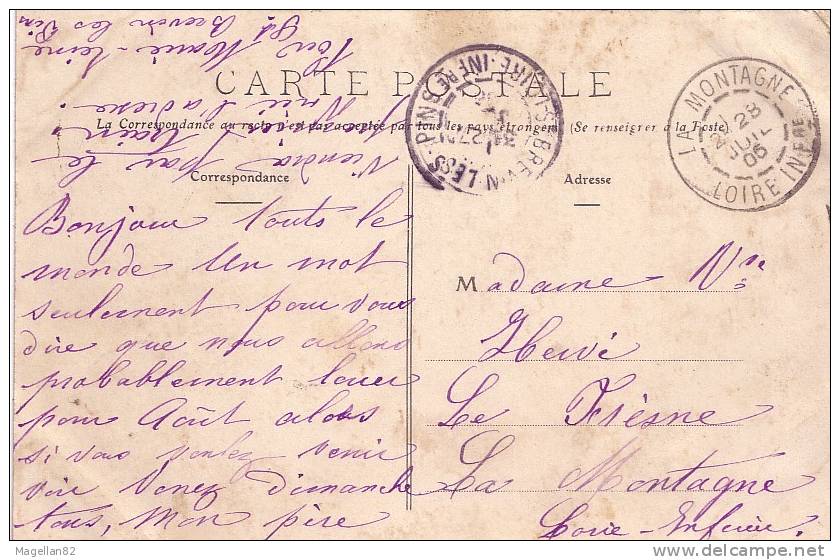 CARTE POSTALE
La Correspondance au recto n'est pas acceptée par tous les pays étrangers (Se renseigner à la Poste)
Correspondance
Adresse
Bonjour touts le
monde Un mot
seulement pour vous
dire que nous allons
probablement louer
pour Août alors
si vous voulez venir
voir Venez Dimanche
tous, Mon père
Viendra par le
train
l'adresse
Marie-
les Pins
Madame Vve
Hervé
Le Fresne
La Montagne
Loire-Inférieu.
LA MONTAGNE
28
JUIL
06
LOIRE INFRE
ST BREVIN LES PINS
LOIRE-INFRE
Magellan82
delcampe.net